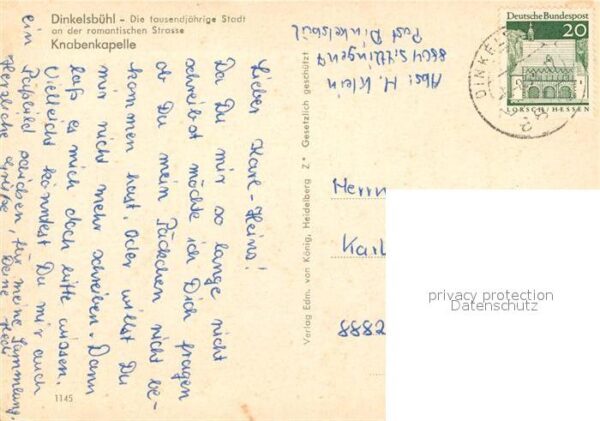 Dinkelsbühl - Die tausendjährige Stadt
an der romantischen Strasse
Knabenkapelle
Lieber Karl-Heinz!
Da Du mir so lange nicht
schreibst möchte ich Dich fragen
ob Du mein Päckchen nicht be-
kommen hast. Oder willst Du
mir nicht mehr schreiben. Dann
laß es mich doch bitte wissen.
Vielleicht könntest Du mir auch
ein Paßbild schicken, für meine Sammlung.
Herzliche Grüße, Deine Hedi
1145
Verlag Edm. von König, Heidelberg Z* Gesetzlich geschützt
Abs: H. Klein
Post Dinkelsbühl
Deutsche Bundespost
20
LORSCH/HESSEN
DINKEL
Herrn
Karl
8882
privacy protection
Datenschutz